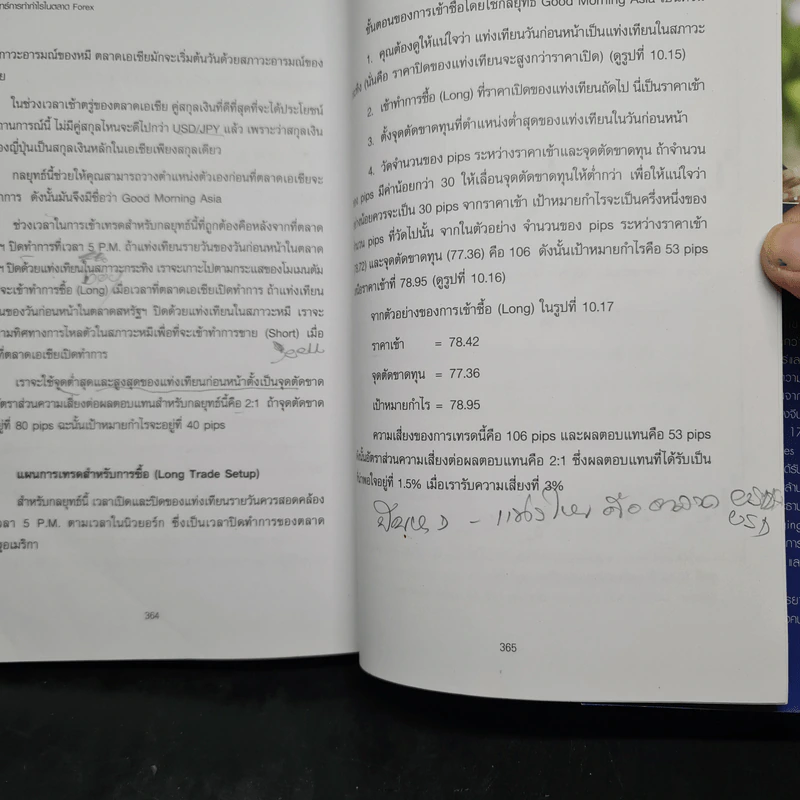 ทธ์การทำกำไรในตลาด Forex
ภาวะอารมณ์ของหมี ตลาดเอเชียมักจะเริ่มต้นวันด้วยสภาวะอารมณ์ของ
ย
ในช่วงเวลาเช้าตรู่ของตลาดเอเชีย คู่สกุลเงินที่ดีที่สุดที่จะได้ประโยชน์
านการณ์นี้ ไม่มีคู่สกุลไหนจะดีไปกว่า USD/JPY แล้ว เพราะว่าสกุลเงิน
องญี่ปุ่นเป็นสกุลเงินหลักในเอเชียเพียงสกุลเดียว
กลยุทธ์นี้ช่วยให้คุณสามารถวางตำแหน่งตัวเองก่อนที่ตลาดเอเชียจะ
าการ ดังนั้นมันจึงมีชื่อว่า Good Morning Asia
ช่วงเวลาในการเข้าเทรดสำหรับกลยุทธ์นี้ที่ถูกต้องคือหลังจากที่ตลาด
ฯ ปิดทำการที่เวลา 5 P.M. ถ้าแท่งเทียนรายวันของวันก่อนหน้าในตลาด
ฯ ปิดด้วยแท่งเทียนในสภาวะกระทิง เราจะเกาะไปตามกระแสของโมเมนตัม
จะเข้าทำการซื้อ (Long) เมื่อเวลาที่ตลาดเอเชียเปิดทำการ ถ้าแท่งเทียน
นของวันก่อนหน้าในตลาดสหรัฐฯ ปิดด้วยแท่งเทียนในสภาวะหมี เราจะ
ามทิศทางการไหลตัวในสภาวะหมีเพื่อที่จะเข้าทำการขาย (Short) เมื่อ
ที่ตลาดเอเชียเปิดทำการ
เราจะใช้จุดต่ำสุดและสูงสุดของแท่งเทียนก่อนหน้าตั้งเป็นจุดตัดขาด
อัตราส่วนความเสี่ยงต่อผลตอบแทนสำหรับกลยุทธ์นี้คือ 2:1 ถ้าจุดตัดขาด
ยู่ที่ 80 pips ฉะนั้นเป้าหมายกำไรจะอยู่ที่ 40 pips
แผนการเทรดสำหรับการซื้อ (Long Trade Setup)
สำหรับกลยุทธ์นี้ เวลาเปิดและปิดของแท่งเทียนรายวันควรสอดคล้อง
วลา 5 P.M. ตามเวลาในนิวยอร์ก ซึ่งเป็นเวลาปิดทำการของตลาด
ฐอเมริกา
364
ขั้นตอนของการเข้าซื้อโดยใช้กลยุทธ์ Good Morning Asia
1. คุณต้องดูให้แน่ใจว่า แท่งเทียนวันก่อนหน้าเป็นแท่งเทียนในสภาวะ
(นั่นคือ ราคาปิดของแท่งเทียนจะสูงกว่าราคาเปิด) (ดูรูปที่ 10.15)
2. เข้าทำการซื้อ (Long) ที่ราคาเปิดของแท่งเทียนถัดไป นี่เป็นราคาเข้า
3. ตั้งจุดตัดขาดทุนที่ตำแหน่งต่ำสุดของแท่งเทียนในวันก่อนหน้า
4. วัดจำนวนของ pips ระหว่างราคาเข้าและจุดตัดขาดทุน ถ้าจำนวน
pips มีค่าน้อยกว่า 30 ให้เลื่อนจุดตัดขาดทุนให้ต่ำกว่า เพื่อให้แน่ใจว่า
น้อยควรจะเป็น 30 pips จากราคาเข้า เป้าหมายกำไรจะเป็นครึ่งหนึ่งของ
pips ที่วัดไปนั้น จากในตัวอย่าง จำนวนของ pips ระหว่างราคาเข้า
และจุดตัดขาดทุน (77.36) คือ 106 ดังนั้นเป้าหมายกำไรคือ 53 pips
ราคาเข้าที่ 78.95 (ดูรูปที่ 10.16)
จากตัวอย่างของการเข้าซื้อ (Long) ในรูปที่ 10.17
ราคาเข้า = 78.42
จุดตัดขาดทุน = 77.36
เป้าหมายกำไร = 78.95
ความเสี่ยงของการเทรดนี้คือ 106 pips และผลตอบแทนคือ 53 pips
นั้นอัตราส่วนความเสี่ยงต่อผลตอบแทนคือ 2:1 ซึ่งผลตอบแทนที่ได้รับเป็น
พอใจอยู่ที่ 1.5% เมื่อเรารับความเสี่ยงที่ 3%
365